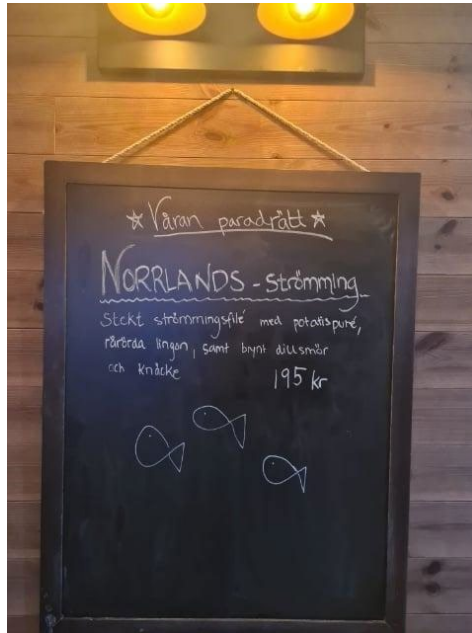 ☆ Våran paradrätt ☆
NORRLANDS - strömming
Stekt strömmingsfilé med potatispuré,
rårörda lingon, samt brynt dillsmör
och knäcke 195 kr